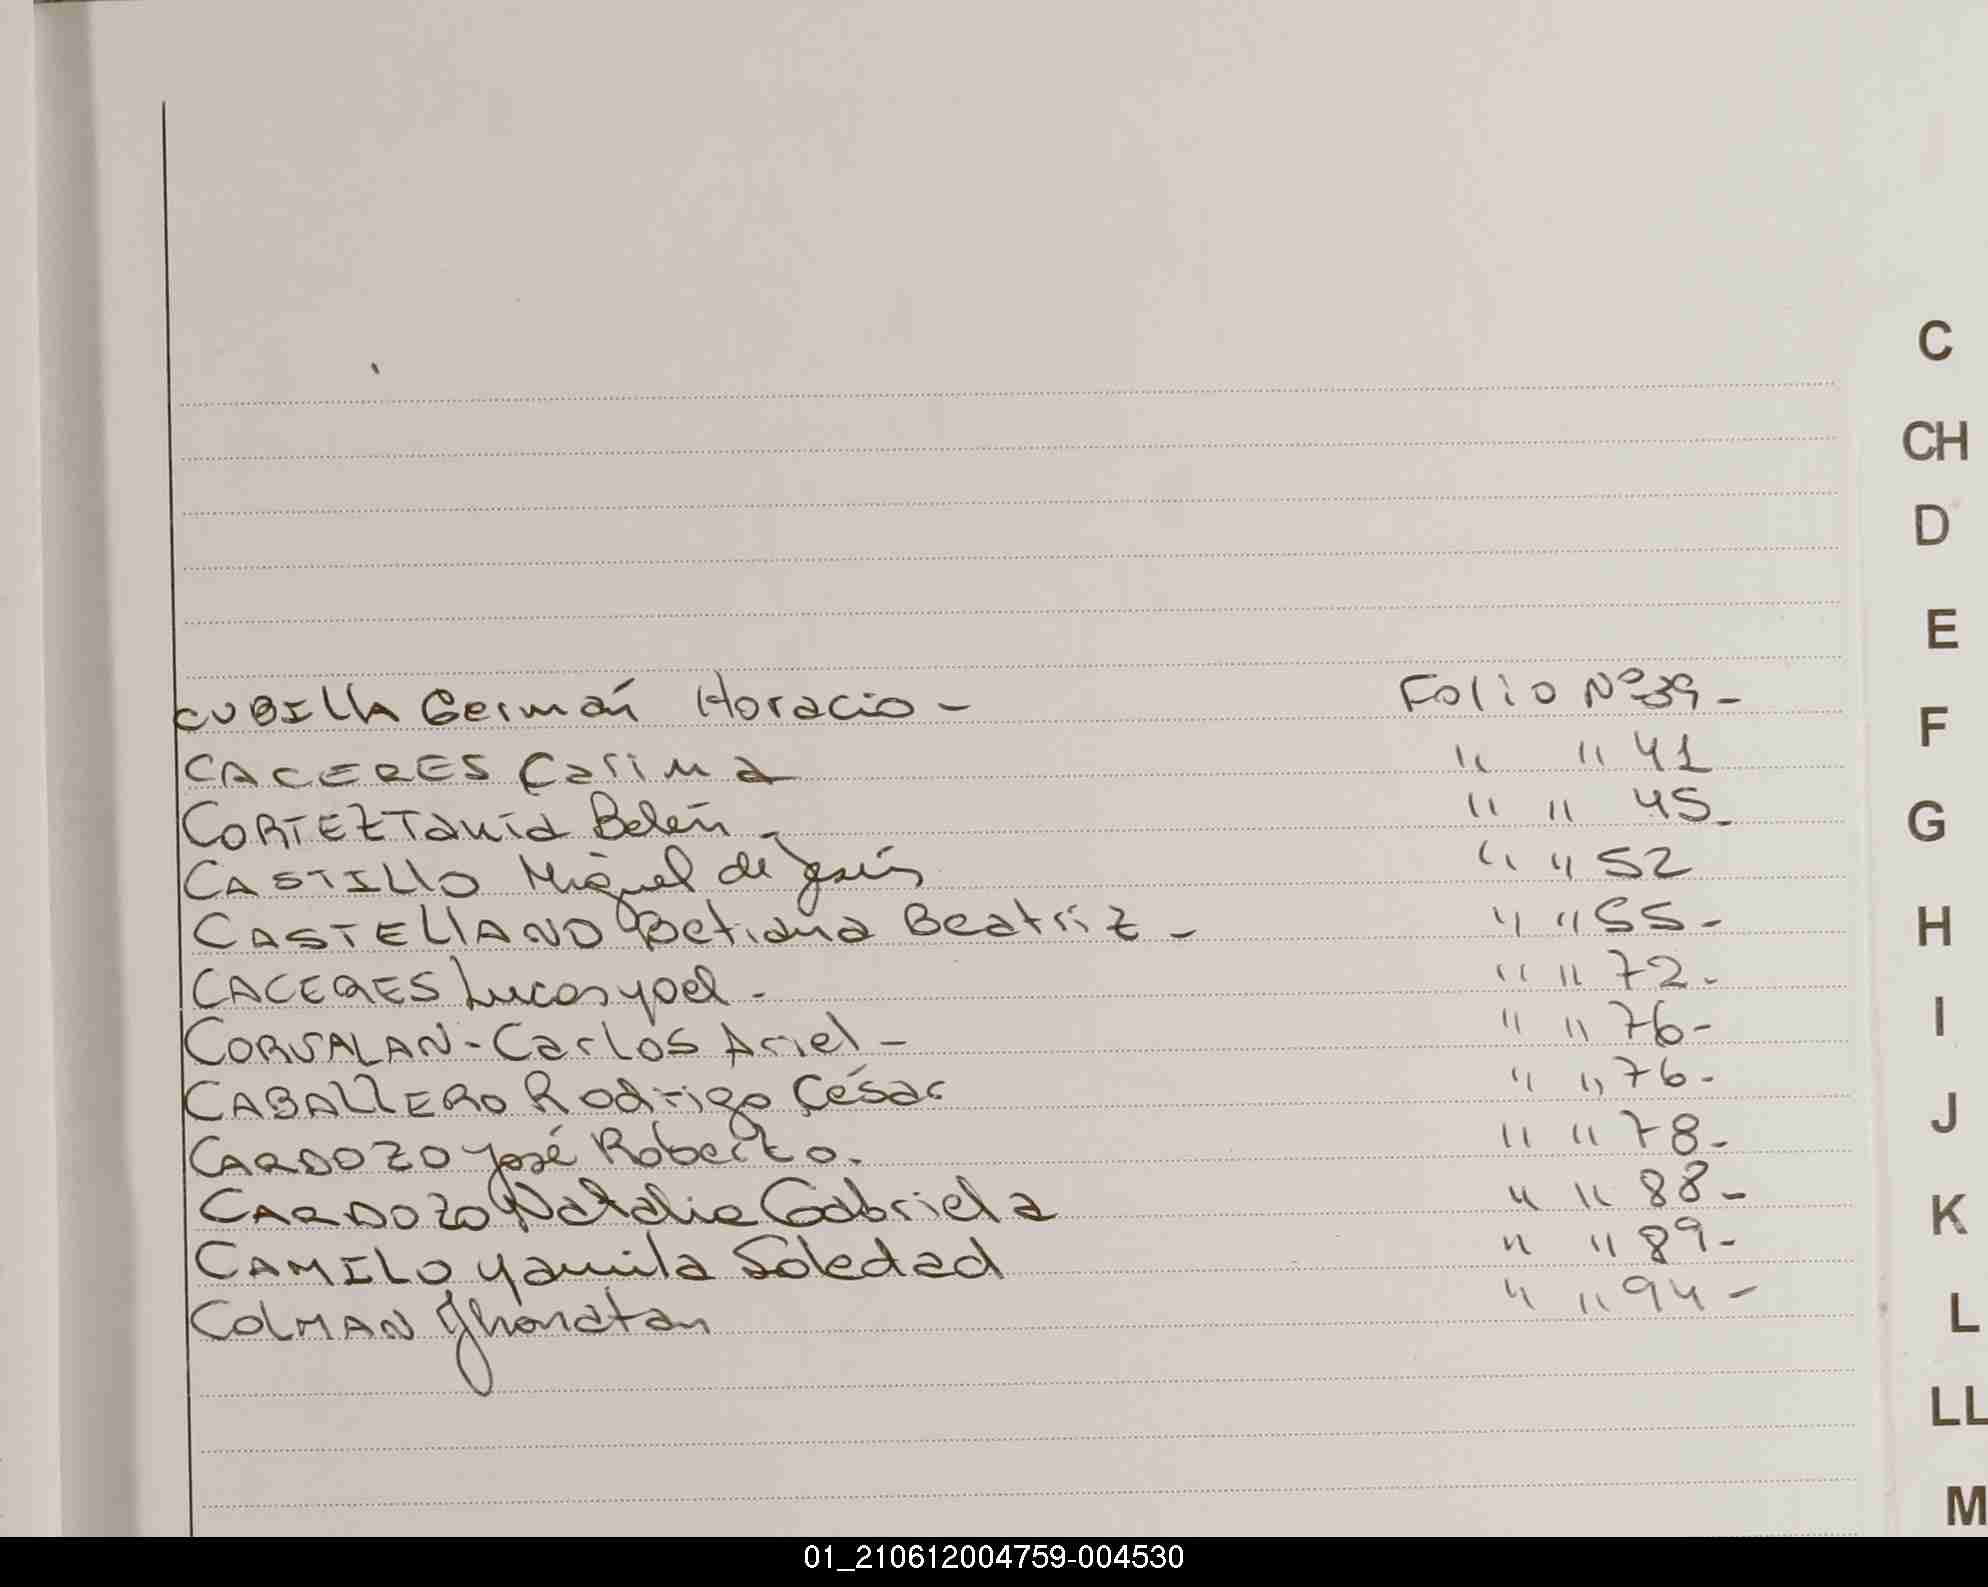 CUBILLA Germán Horacio - Folio Nº 39 -
CACERES Carina " " 41
CORTEZ Tania Belén - " " 45 -
CASTILLO Miguel de Jesús " " 52
CASTELLANO Betiana Beatriz - " " 55 -
CACERES Lucas yoel - " " 72 -
CORVALAN - Carlos Ariel - " " 76 -
CABALLERO Rodrigo César " " 76 -
CARDOZO José Roberto. " " 78 -
CARDOZO Natalia Gabriela " " 88 -
CAMILO yamila Soledad " " 89 -
COLMAN Jhonatan " " 94 -
C
CH
D
E
F
G
H
I
J
K
L
LL
M
01_210612004759-004530